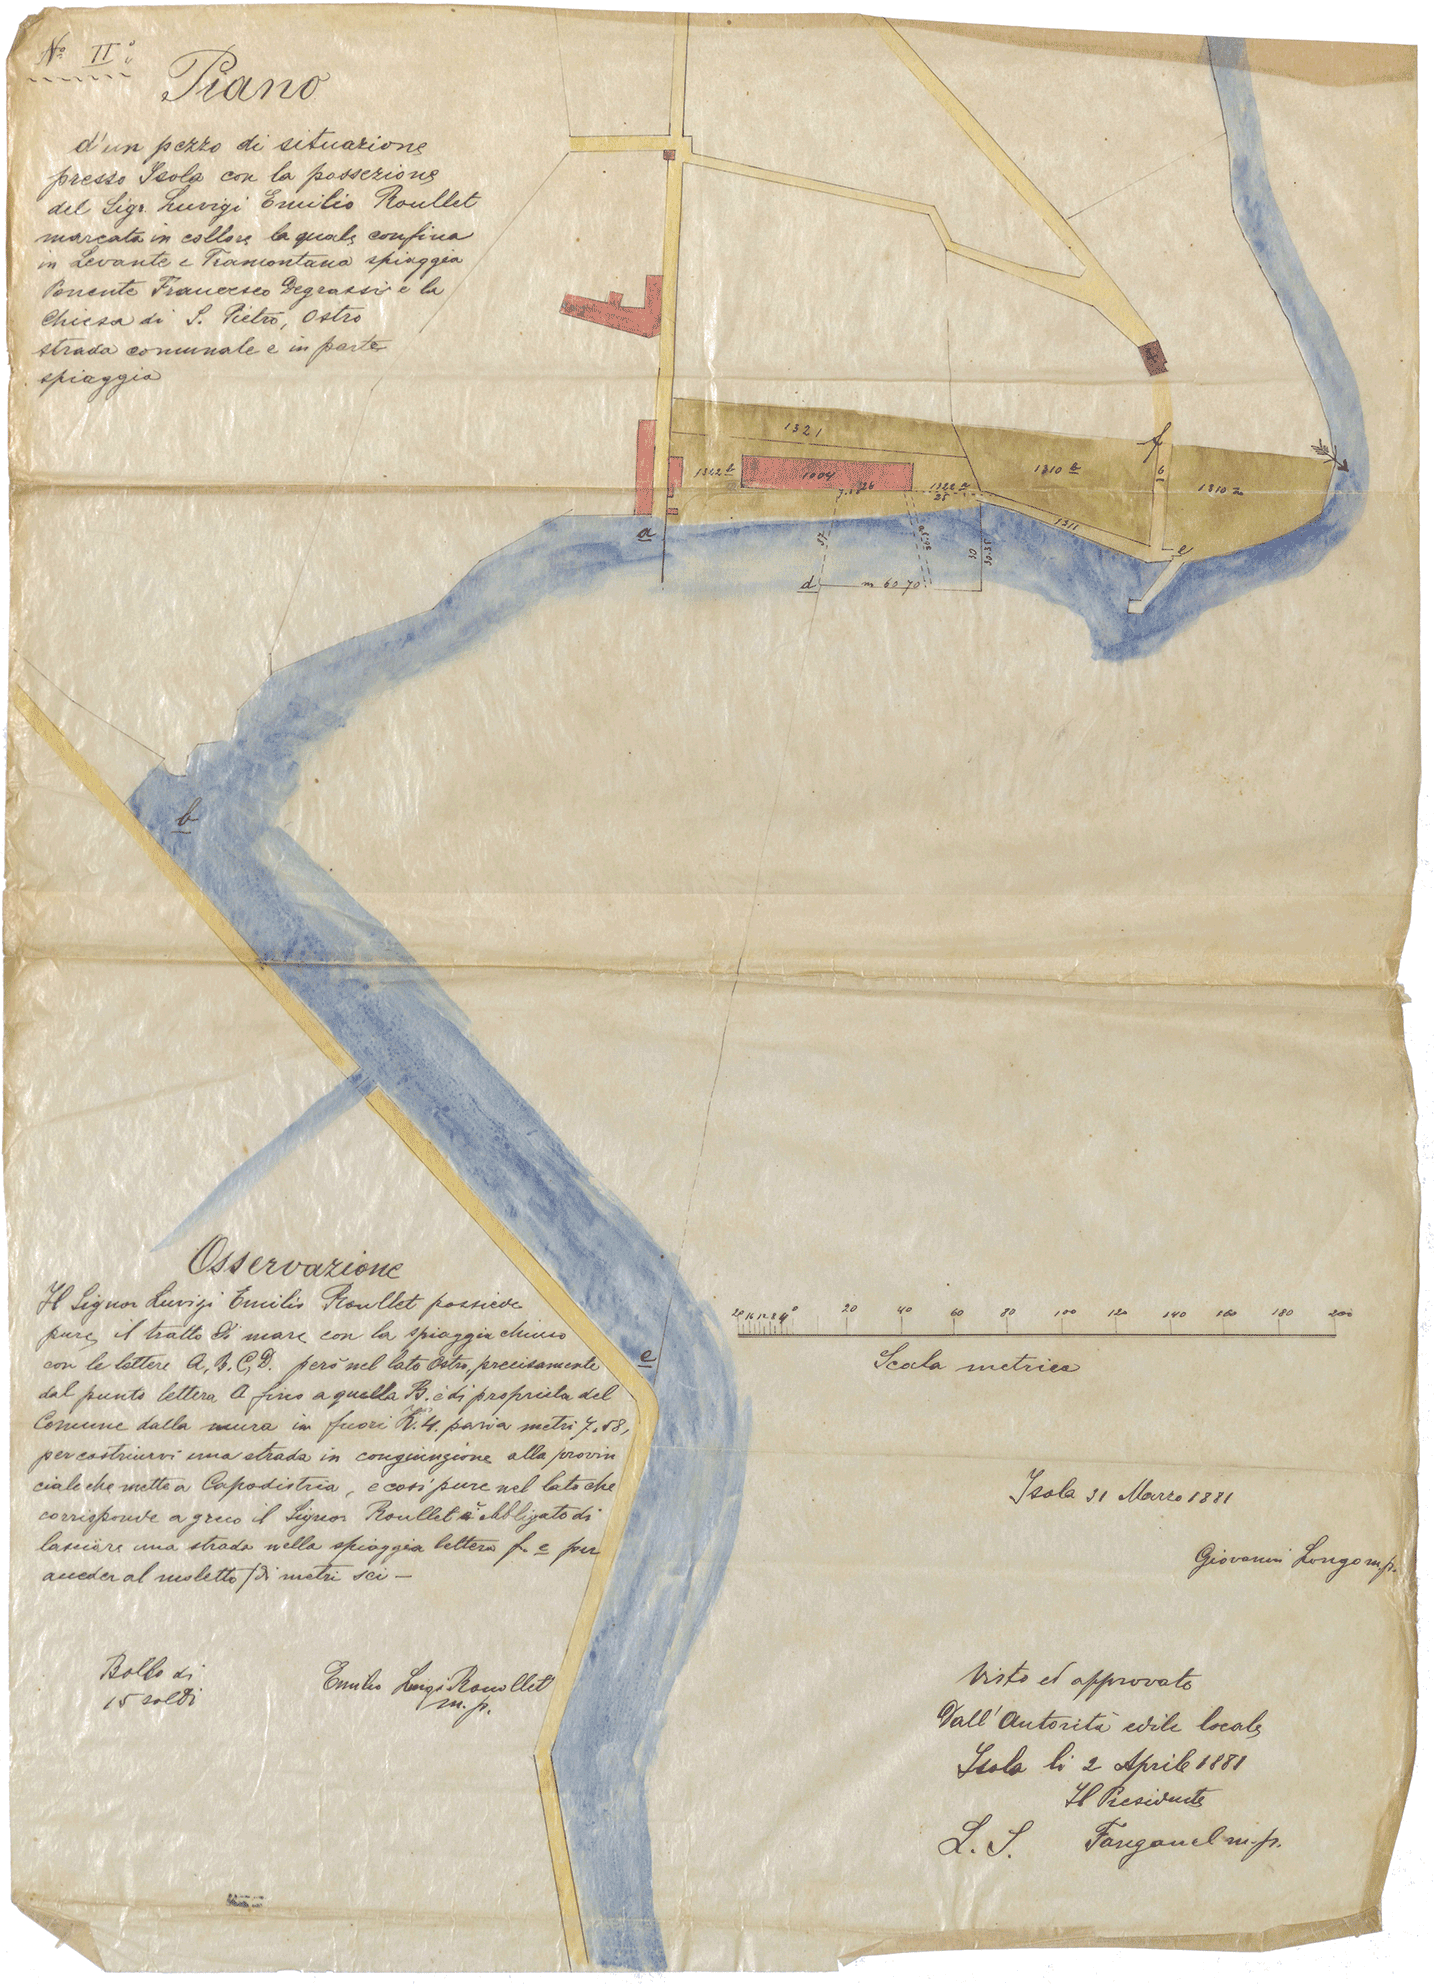 No IIo
Piano
d'un pezzo di situazione
presso Isola con la possezione
del Sigr. Luvigi Emilio Roullet
marcata in collore la quale confina
in Levante e Tramontana spiaggia
Ponente Francesco Degrassi e la
Chiesa di S. Pietro, Ostro
strada comunale e in parte
spiaggia
f
1321
1322 b
1004
1310 b
6
1310 a
7.58
26
1322 a
25
1311
a
57
30
30.35
e
d
m 60 70
b
Osservazione
Il Signor Luvigi Emilio Roullet possiede
pure, il tratto di mare con la spiaggia chiuso
con le lettere A, B, C, D. però nel lato Ostro, precisamente
dal punto lettera A fino a quella B. è di proprieta del
Comune dalla mura in fuori K. 4. paria metri 7.58,
per costruirvi una strada in congiunzione alla provin
ciale che mette a Capodistria, e così pure nel lato che
corrisponde a greco il Signor Roullet è obbligato di
lasciare una strada nella spiaggia lettera f. e per
al moletto di metri sei —
20 16 12 8 4 0 20 40 60 80 100 120 140 160 180 200
Scala metrica
c
Isola 31 Marzo 1881
Giovanni Longo m.p.
Bollo di
15 soldi
Emilio Luigi Roullet
m.p.
Visto ed approvato
Dall'Autorità edile locale
Isola li 2 Aprile 1881
Il Presidente
L. S. Fanganel m.p.